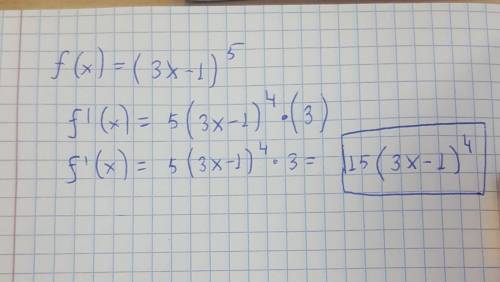 f(x) = (3x-1)^5
f'(x) = 5(3x-1)^4 · (3)
f'(x) = 5(3x-1)^4 · 3 = 15(3x-1)^4